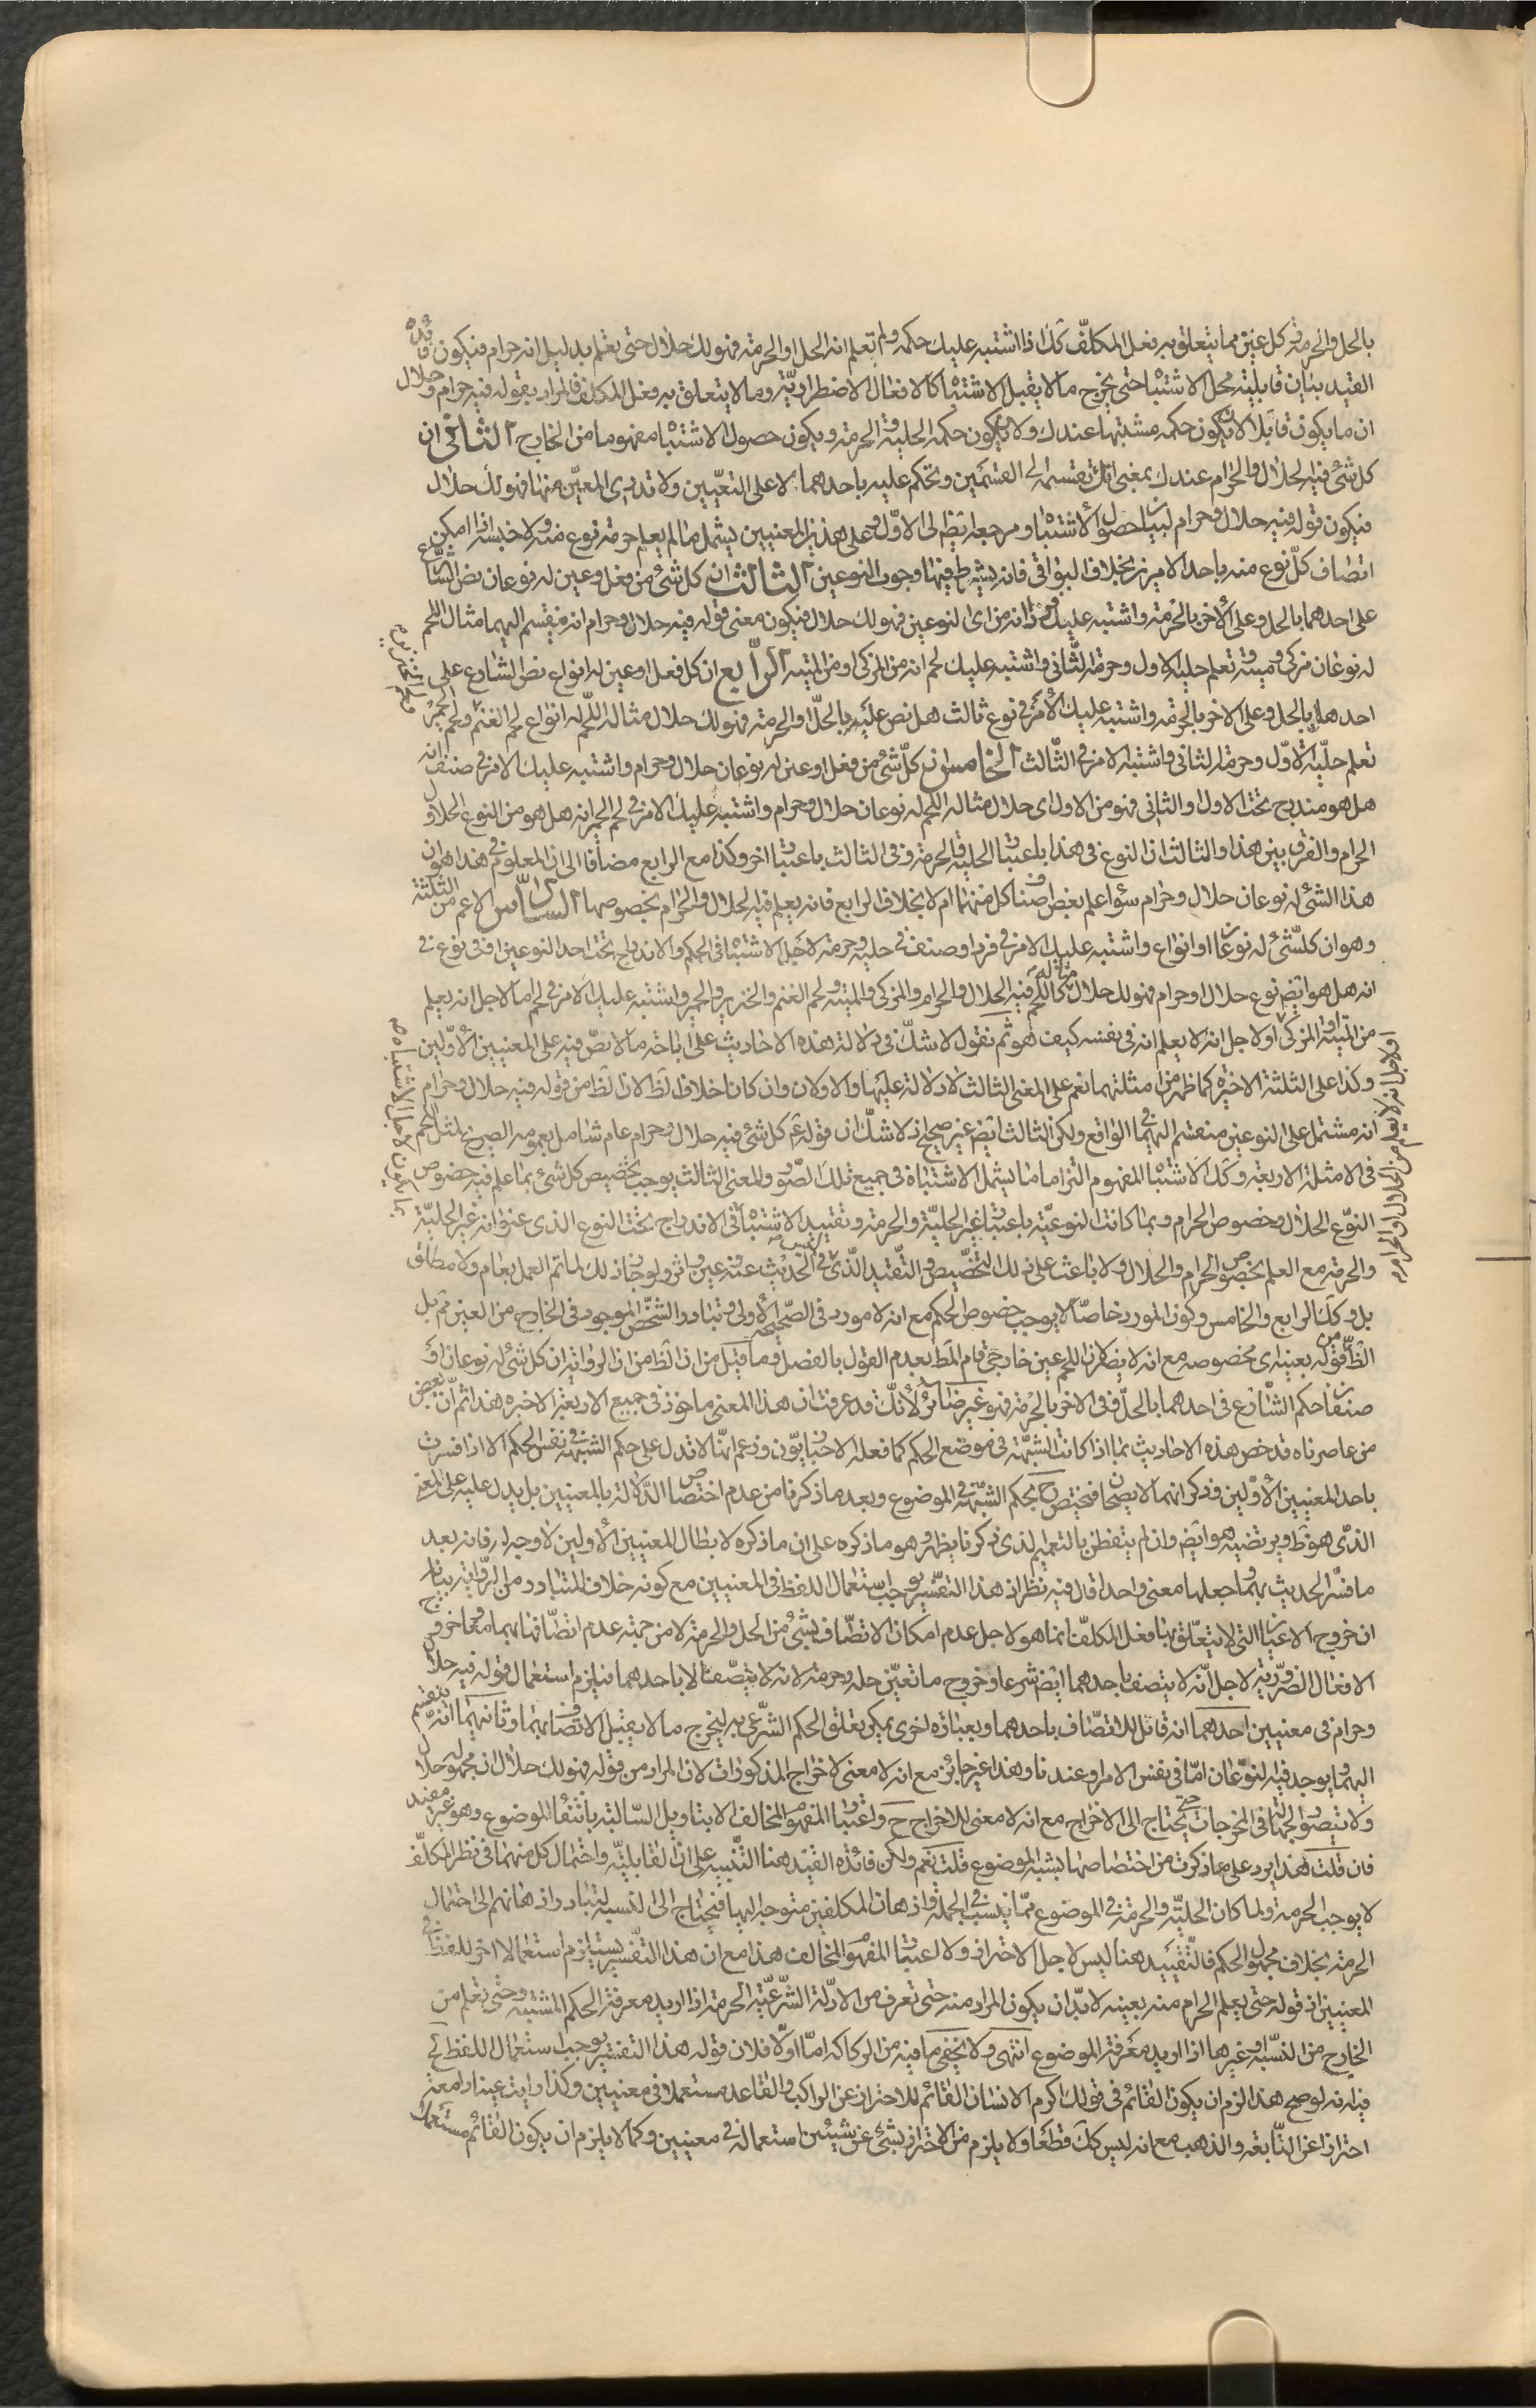 بالحل والحرمة كل عين مما يتعلق به فعل المكلف كك اذا اشتبه عليك حكمه ولم تعلم انه الحل او الحرمة فهو لك حلال حتى تعلم بدليل انه حرام فيكون فائدة
القيد بيان قابلية محل الاشتباه حتى يخرج ما لا يقبل الاشتباه كالافعال الاضطرارية وما لا يتعلق به فعل المكلف فالمراد بقوله فيه حرام وحلال
ان ما يكون قابلا لان يكون حكمه مشتبها عندك ولان يكون حكمه الحلية والحرمة ويكون حصول الاشتباه مفهوما من الخارج الثاني ان
كل شئ فيه الحلال والحرام عندك بمعنى انك تقسمه الى القسمين وتحكم عليه باحدهما لا على التعيين ولا تدري المعين منها فهو لك حلال
فيكون قوله فيه حلال وحرام لبيان حصول الاشتباه ومرجعه ايض الى الاول وعلى هذين المعنيين يشمل ما لم يعلم حرمة نوع منه ولا خبسه اذا امكن
اتصاف كل نوع منه باحد الامرين بخلاف البواقي فانه يشترط فيها وجود النوعين الثالث ان كل شئ من فعل وعين له نوعان نص الشارع
على احدهما بالحل وعلى الاخر بالحرمة واشتبه عليك فرد انه من اى النوعين فهو لك حلال فيكون معنى قوله فيه حلال وحرام انه ينقسم اليهما مثال اللحم
له نوعان مزكى وميتة وتعلم حلية الاول وحرمة الثاني واشتبه عليك لحم انه من المزكى او من الميتة الرابع ان كل فعل او عين له انواع نص الشارع على
احدهما بالحل وعلى الاخر بالحرمة واشتبه عليك الامر في نوع ثالث هل نص عليه بالحل او الحرمة فهو لك حلال مثاله اللحم له انواع لحم الغنم ولحم الخنزير ولحم الحمير
تعلم حلية الاول وحرمة الثاني واشتبه الامر في الثالث الخامس ان كل شئ من فعل او عين له نوعان حلال وحرام واشتبه عليك الامر في صنف انه
هل هو مندرج تحت الاول او الثاني فهو من الاول اى حلال مثاله اللحم له نوعان حلال وحرام واشتبه عليك الامر في لحم الحمير انه هل هو من النوع الحلال او
الحرام والفرق بين هذا والثالث ان النوع في هذا باعتبار الحلية والحرمة وفي الثالث باعتبار اخر وكذا مع الرابع مضافا الى ان المعلوم في هذا هو ان
هذا الشئ له نوعان حلال وحرام سواء علم بعض اصناف كل منهما ام لا بخلاف الرابع فانه يعلم فيه الحلال والحرام بخصوصهما السادس الاعم من الثلثة
وهو ان كل شئ له نوعان او انواع واشتبه عليك الامر في فرد او صنف في حليه وحرمته لاجل الاشتباه في الحكم والاندراج تحت احد النوعين او في نوع في
انه هل هو ايض نوع حلال او حرام فهو لك حلال مثاله كاللحم فيه الحلال والحرام والمزكى والميتة ولحم الغنم والخنزير والحمير واشتبه عليك الامر في لحم اما لاجل انه يعلم
من الميتة او المزكى او لاجل انه لا يعلم انه في نفسه كيف هو ثم نقول لا شك في دلالة هذه الاحاديث على اباحة ما لا نص فيه على المعنيين الاولين
وكذا على الثلثة الاخيرة كما ظهر من امثلتها نعم على المعنى الثالث لا دلالة عليها والاولان وان كان خلاف الظ لان الظ من قوله فيه حلال وحرام
انه مشتمل على النوعين منقسم اليهما في الواقع ولكن الثالث ايض غير صحيح اذ لا شك ان قوله ع كل شئ فيه حلال وحرام عام شامل بعمومه الصريح لمثل اللحم
في الامثلة الاربعة وكك الاشتباه المفهوم التزاما ما يشمل الاشتباه في جميع تلك الصور والمعنى الثالث يوجب تخصيص كل شئ بما علم فيه خصوص
النوع الحلال وخصوص الحرام وبما كانت النوعية باعتبار غير الحلية والحرمة وتقييد الاشتباه في الاندراج تحت النوع الذى عنوانه غير الحلية
والحرمة مع العلم بخصوص الحرام والحلال ولا باعث على ذلك التخصيص والتقييد الذى ليس في الحديث عنه عين واثر ولو جاز ذلك لما تم العمل بعام ولا مطلق
بل وكك الرابع والخامس وكون المورد خاصا لا يوجب خصوص الحكم مع انه لا مورد في الصحيحة الاولى وتبادر الشخص الموجود في الخارج من العين ثم بل
الظ من قوله بعينه اى بخصوصه مع انه لا يضر لان اللحم عين خارجي قام المط بعدم القول بالفصل وما قيل من ان الظ من ان الرواية ان كل شئ له نوعان او
صنفان حكم الشارع في احدهما بالحل وفي الاخر بالحرمة فهو غير ضائر لانك قد عرفت ان هذا المعنى ماخوذ في جميع الاربعة الاخيرة هذا ثم ان بعض
من عاصرناه قد خص هذه الاحاديث بما اذا كانت الشبهة في موضع الحكم كما فعله الاخباريون وزعم انها لا تدل على حكم الشبهة في نفس الحكم الا اذا فسرت
باحد المعنيين الاولين وذكر انهما لا يصحان فيختص ح بحكم الشبهة في الموضوع وبعد ما ذكرنا من عدم اختصاص الدلالة بالمعنيين بل يدل عليه على المعنى
الذى هو ظ ويرتضيه هو ايض وان لم يتفطن بالتعميم الذى ذكرنا يظهر وهو ما ذكره على ان ما ذكره لابطال المعنيين الاولين لا وجه له فانه بعد
ما فسر الحديث بهما وجعلهما معنى واحدا قال فيه نظر اذ هذا التفسير يوجب استعمال اللفظ في المعنيين مع كونه خلاف المتبادر من الرواية بيانه
ان خروج الاعيان التي لا يتعلق بها فعل المكلف انما هو لاجل عدم امكان الاتصاف بشئ من الحل والحرمة لا من جهة عدم اتصافها بهما معا وخروج
الافعال الضرورية لاجل انه لا يتصف باحدهما ايض شرعا وخروج ما تعين حله وحرمته لانه لا يتصف الا باحدهما فيلزم استعمال قوله فيه حلال
وحرام في معنيين احدهما انه قابل للاتصاف باحدهما وبعبارة اخرى يمكن تعلق الحكم الشرعي به ليخرج ما لا يقبل الاتصاف بهما وثانيهما انه ينقسم
اليهما ويوجد فيه النوعان اما في نفس الامر او عندنا وهذا غير جائز مع انه لا معنى لاخراج المذكورات لان المراد من قوله فهو لك حلال ان مجهوله حلال
ولا يتصور الجهالة في المخرجات حتى يحتاج الى الاخراج مع انه لا معنى للاخراج ح واعتبار المفهوم المخالف الا بتاويل السالبة بانتفاء الموضوع وهو غير مفيد
فان قلت هذا يرد على ما ذكرت من اختصاصها بشبه الموضوع قلت نعم ولكن فائدة القيد هنا التنبيه على ان القابلية واحتمال كل منهما في نظر المكلف
لا يوجب الحرمة ولما كان الحلية والحرمة في الموضوع مما ينسب في الجملة واذهان المكلفين متوجه اليها فيحتاج الى التنبيه لتبادر اذهانهم الى احتمال
الحرمة بخلاف مجهول الحكم فالتقييد هنا ليس لاجل الاحتراز ولا لاعتبار المفهوم المخالف هذا مع ان هذا التفسير يستلزم استعمالا اخر للفظ في
المعنيين اذ قوله حتى يعلم الحرام منه بعينه لا بد ان يكون المراد منه حتى تعرف من الادلة الشرعية الحرمة اذا اريد معرفة الحكم المشتبه وحتى تعلم من
الخارج من البينة او غيرها اذا اريد معرفة الموضوع انتهى ولا يخفى ما فيه من الركاكة اما اولا فلان قوله هذا التفسير يوجب استعمال اللفظ الخ
فيه انه لو صح هذا لزم ان يكون القائم في قولك اكرم الانسان القائم للاحتراز عن الراكب والقاعد مستعملا في معنيين وكذا رايت عينا دامعة
احترازا عن النابعة والذهب مع انه ليس كك قطعا ولا يلزم من الاحتراز بشئ عن شيئين استعماله في معنيين وكما لا يلزم ان يكون القائم مستعملا